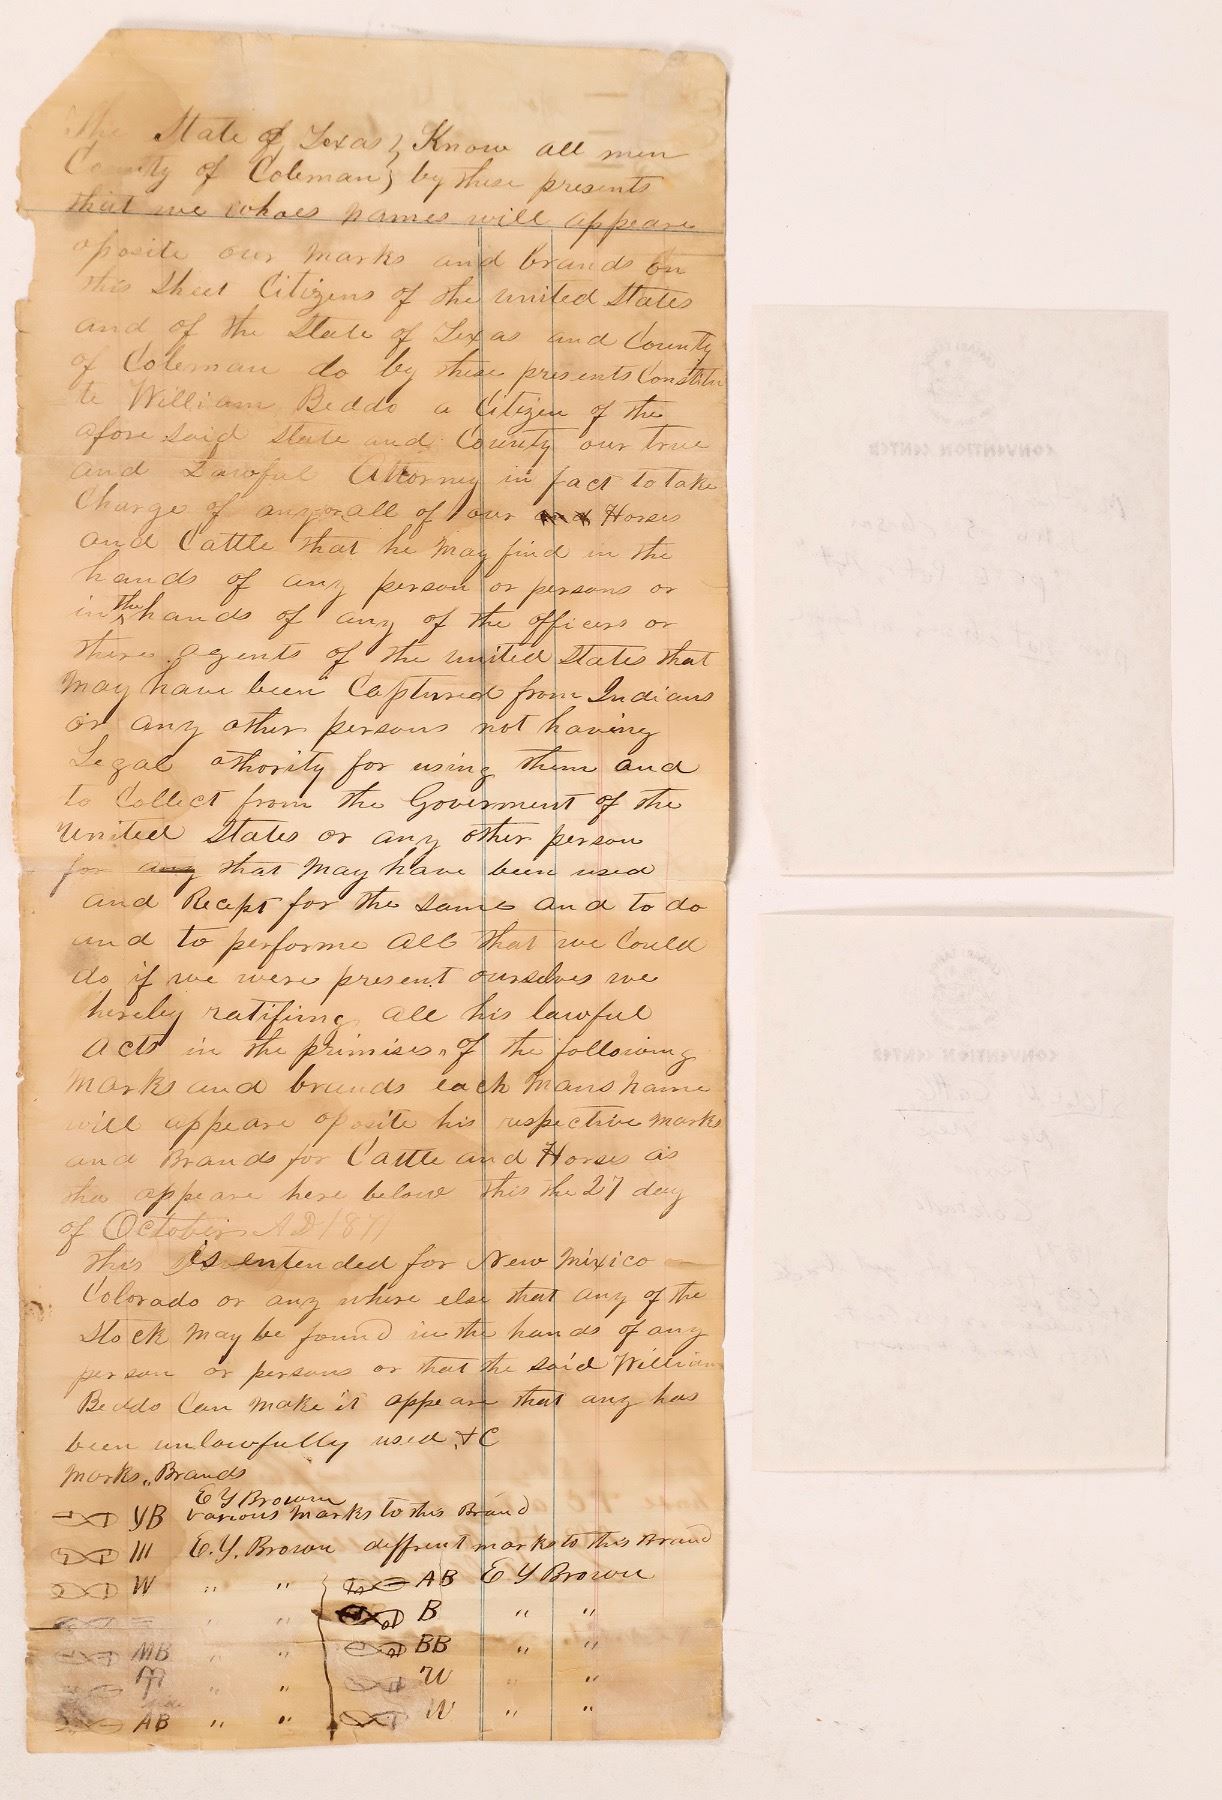 The State of Texas } Know all men
County of Coleman } by these presents
that we whoes names will appeare
oposite our marks and brands on
this Sheet Citizens of the united States
and of the State of Texas and County
of Coleman do by these presents Constitu
te William Beddo a Citizen of the
afore said State and County our true
and Lawful Attorney in fact to take
Charge of any or all of our and Horses
and Cattle that he may find in the
hands of any person or persons or
in the hands of any of the officers or
there agents of the united States that
May have been Captured from Indians
or any other persons not having
Legal athority for using them and
to Collect from the Goverment of the
United States or any other person
for any that May have been used
and Recept for the same and to do
and to performe all that we Could
do if we were present ourselves we
hereby ratifing all his lawful
Acts in the primises, of the following
Marks and brands each Mans name
will appeare oposite his respective marks
and Brands for Cattle and Horses as
tha appeare here below this the 27 day
of October AD 1871
this is entended for New Mixico
Colorado or any where else that any of the
Stock May be found in the hands of any
person or persons or that the said William
Beddo Can make it appeare that any has
been unlawfully used &C
Marks,, Brands
E Y Brown
YB various marks to this Brand
III E. Y. Brown diffrent marks to this Brand
W " " AB E Y Brown
" " B " "
MB " " BB " "
" " W " "
AB " " W " "
CONVENTION CENTER
CONVENTION CENTER
Cattle
Colorado